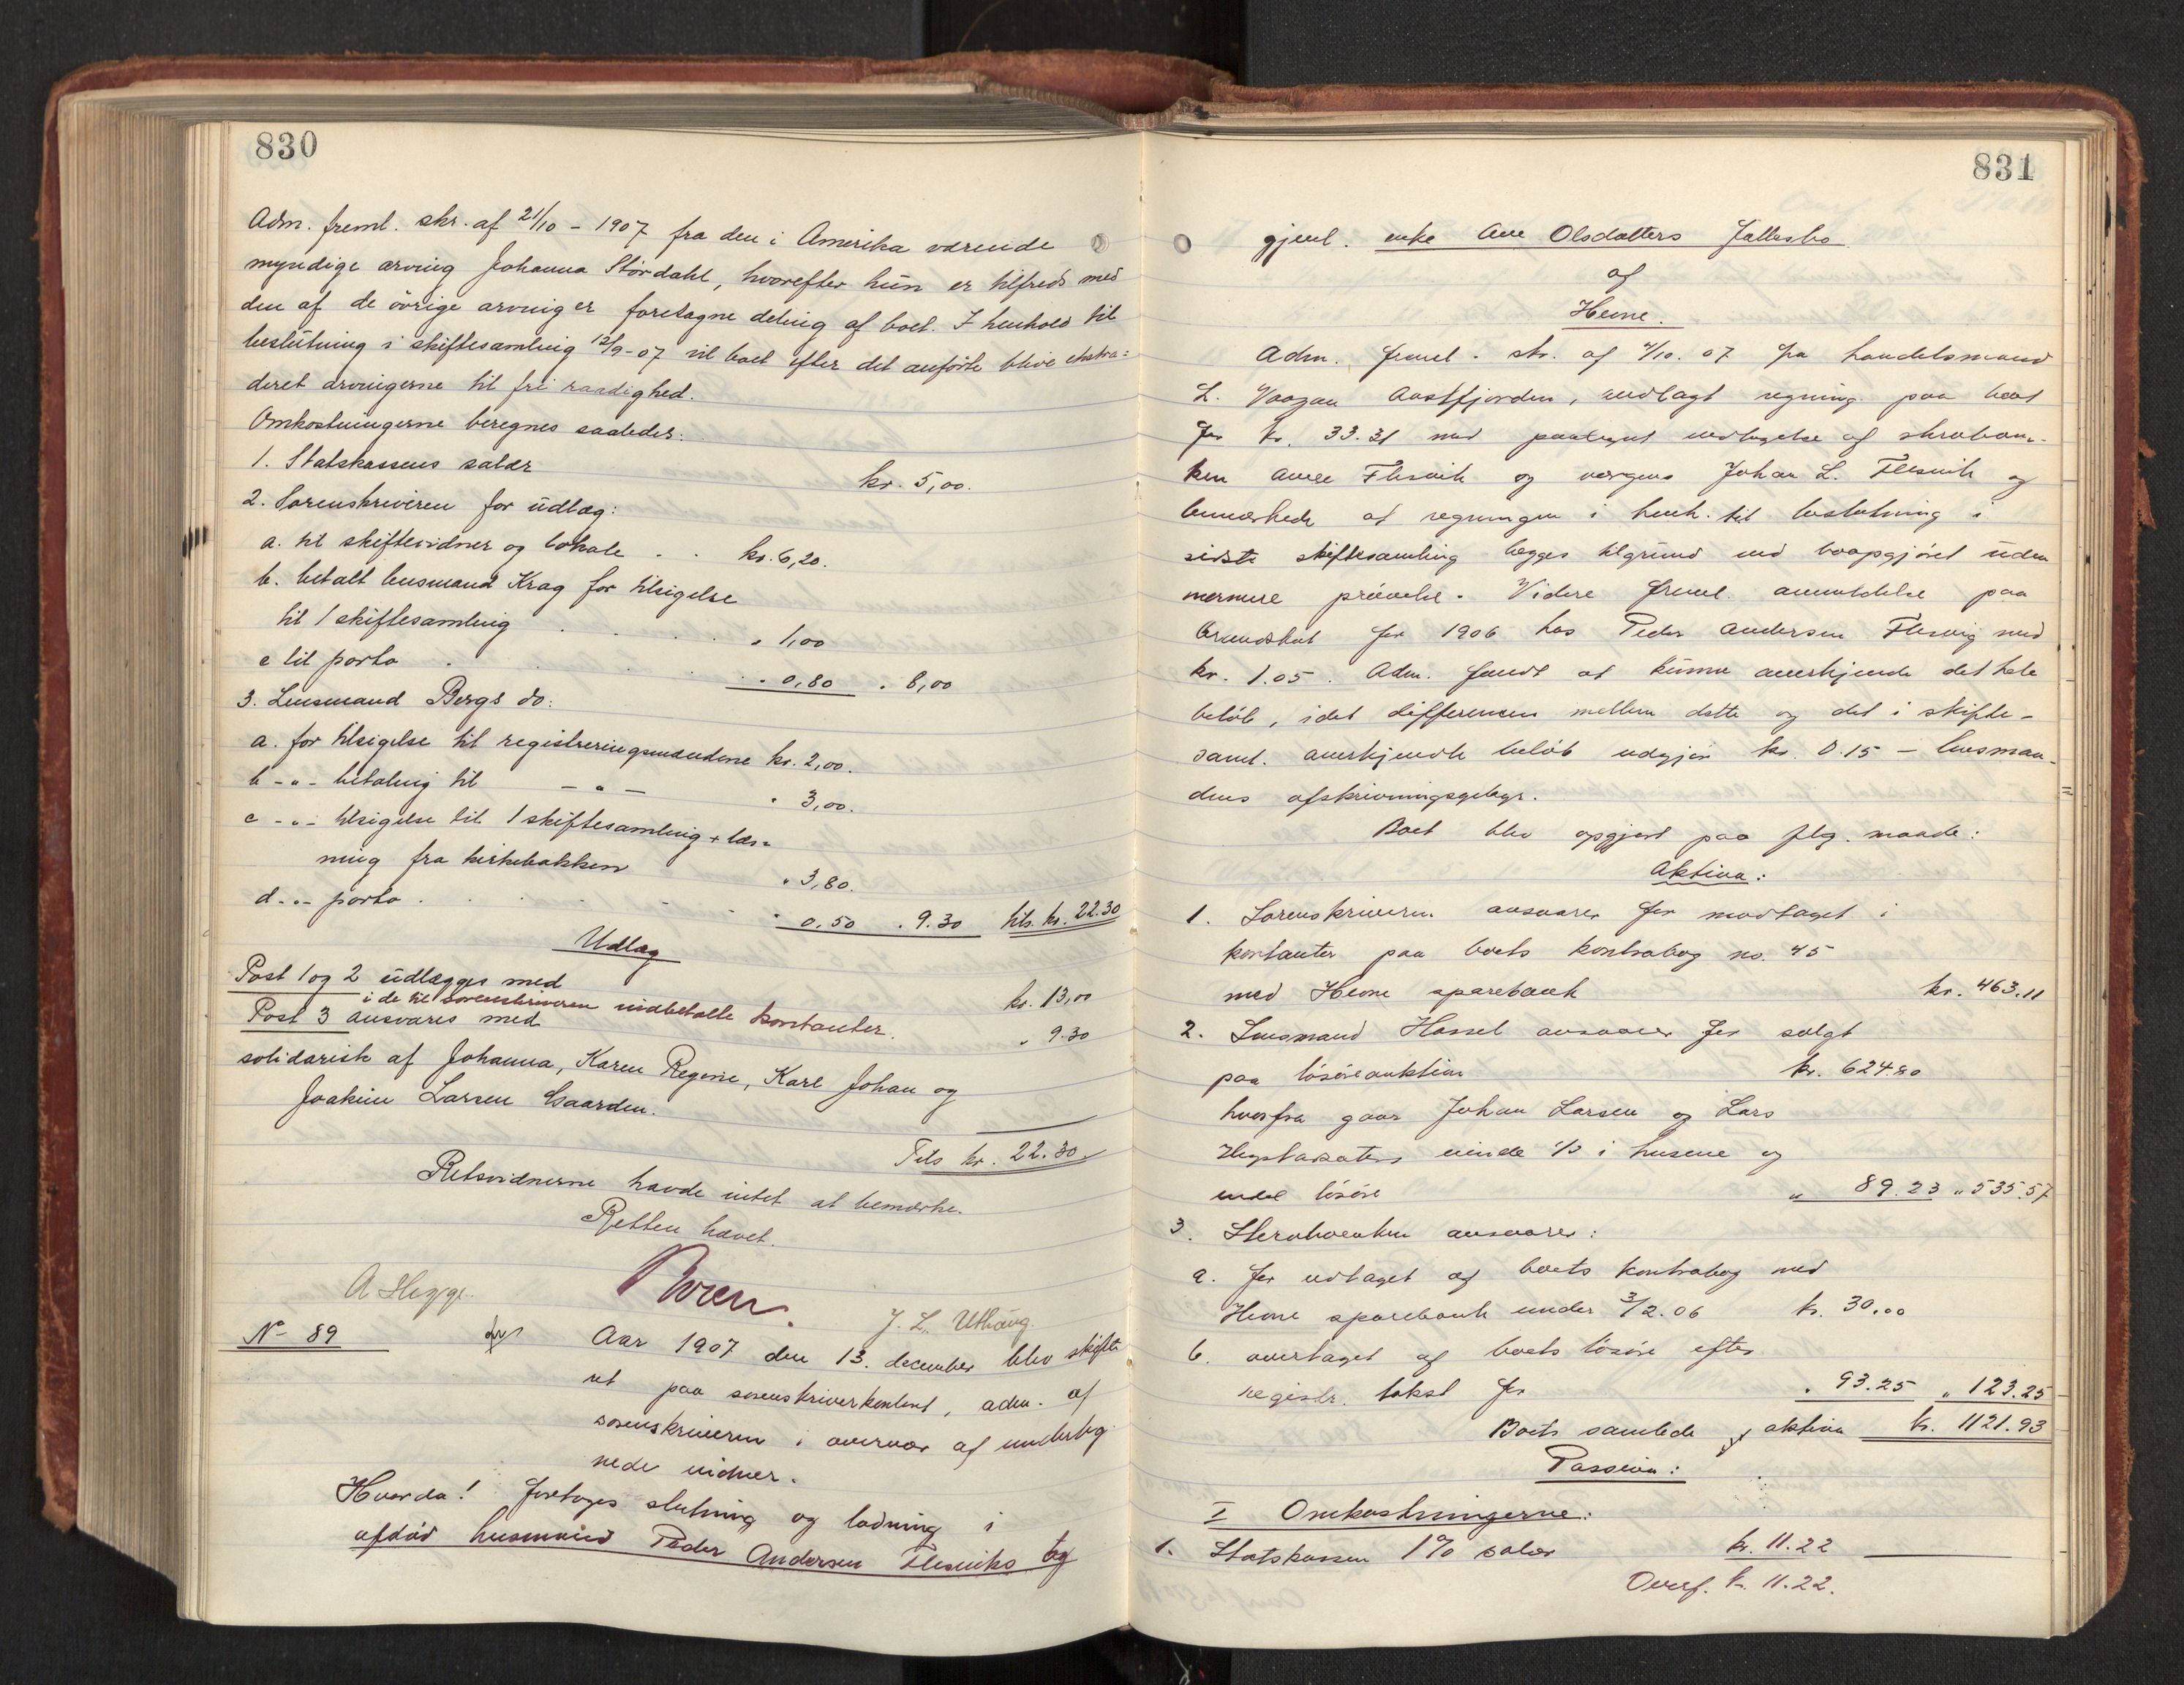 830
Adm. freml. skr. af 21/10 - 1907 fra den i Amerika værende
myndige arving Johanna Stördahl, hvorefter hun er tilfreds med
den af de övrige arvinger foretagne deling af boet. I henhold til
beslutning i skiftesamling 12/9-07 vil boet efter det anförte blive ekstra=
deret arvingerne til fri raadighed.
Omkostningerne beregnes saaledes:
1. Statskassens salær kr. 5,00.
2. Sorenskriveren for udlæg:
a. til skiftevidner og lokale . . kr. 6,20.
b. betalt lensmand Krag for tilsigelse
til 1 skiftesamling . . . . . " 1,00
c til porto . . . . . " 0,80 . 8,00
3. Lensmand Bergs do:
a. for tilsigelse til registreringsmændene kr. 2,00.
b - " - betaling til - " - " 3,00.
c - " - tilsigelse til 1 skiftesamling + læs=
ning fra kirkebakken " 3,80.
d - " - porto . . . . . " 0,50 . 9.30 tils. kr. 22.30
Udlæg
Post 1 og 2 udlægges med kr. 13,00
i de til sorenskriveren indbetalte kontanter.
Post 3 ansvares med " 9.30
solidarisk af Johanna, Karen Regine, Karl Johan og
Joakim Larsen Gaarden.
Tils kr. 22.30.
Retsvidnerne havde intet at bemærke.
Retten hævet.
A Hegge. J. L. Uthaug.
No 89
Aar 1907 den 13. december blev skifte
ret paa sorenskriverkontoret, adm. af
sorenskriveren i overvær af underteg
nede vidner.
Hvorda! foretoges slutning og lodning i
afdöd husmand Peder Andersen Flesviks og
831
gjenl. enke Ane Olsdatters fællesbo
af
Hevne.
Adm. freml. skr. af 4/10. 07 fra handelsmand
L. Vaagan Aastfjorden, vedlagt regning paa boet
for kr. 33.31 med paategnet vedtagelse af skrøbøn-
ken Ane Flesvik og værgens Johan L. Flesvik og
bemærkede at regningen i henh. til beslutning i
sidste skiftesamling lægges tilgrund ved boopgjöret uden
nærmere prövelse. Videre freml. anmeldelse paa
Grundskat for 1906 hos Peder Andersen Flesvig med
kr. 1.05. Adm. fandt at kunne anerkjende det hele
belöb, idet differencen mellem dette og det i skifte-
saml. anerkjendte belöb udgjör kr. 0.15 - lensman-
dens afskrivningsgebyr.
Boet blev opgjort paa flg. maade:
Aktiva:
1. Sorenskriveren ansvarer for modtaget i
kontanter paa boets kontrabog no. 45
med Hevne sparebank kr. 463.11
2. Lensmand Hassel ansvarer for solgt
paa lösöreauktion kr. 624.80
hvorfra gaar Johan Larsen og Lars
eiende 1/3 i husene og
endel lösöre " 89.23 " 535.57
3. Stervboenken ansvarer:
a. for udtaget af boets kontrabog med
Hevne sparebank under 3/2.06 kr. 30.00
b. overtaget af boets lösöre efter
registr. takst for " 93.25 " 123.25
Boets samlede aktiva kr. 1121.93
Passiva:
I Omkostningerne:
1. Statskassen 1% salær kr. 11.22
Overf. kr. 11.22.